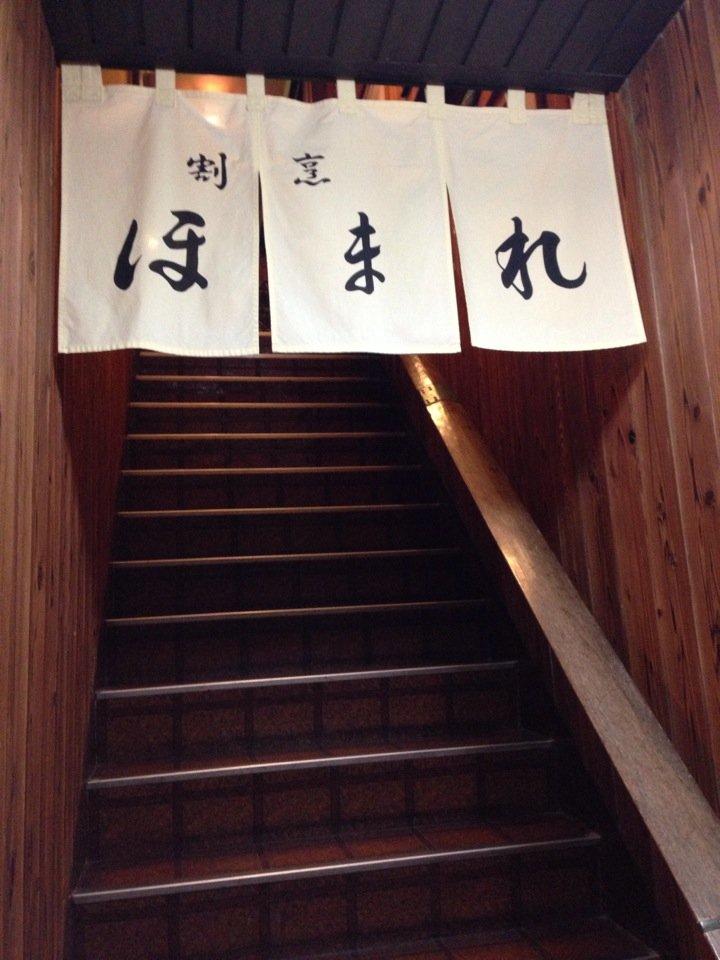 割烹
ほまれ